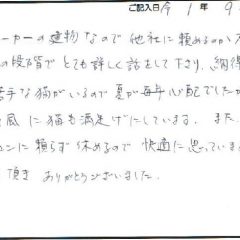 ご記入日 令 1 年 9.
ーカーの建物なので他社に頼めるのか
の段階でとても詳しく話をして下さり、納得
苦手な猫がいるので夏が毎年心配でしたが
風に猫も満足げにしています。また
に頼らず休めるので快適に思っていま
頂きありがとうございました。